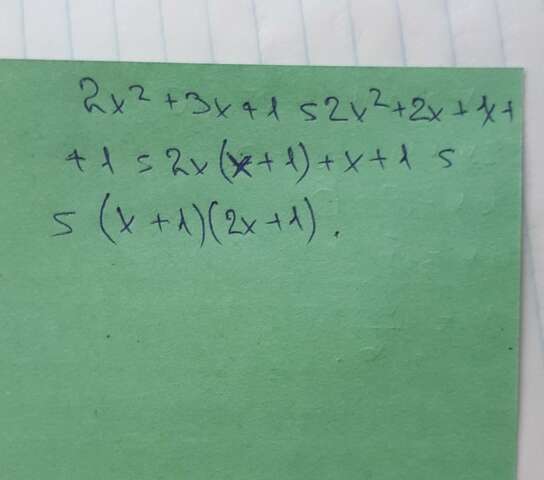 2x² + 3x + 1 = 2x² + 2x + 1x +
+ 1 = 2x(x + 1) + x + 1 =
= (x + 1)(2x + 1).